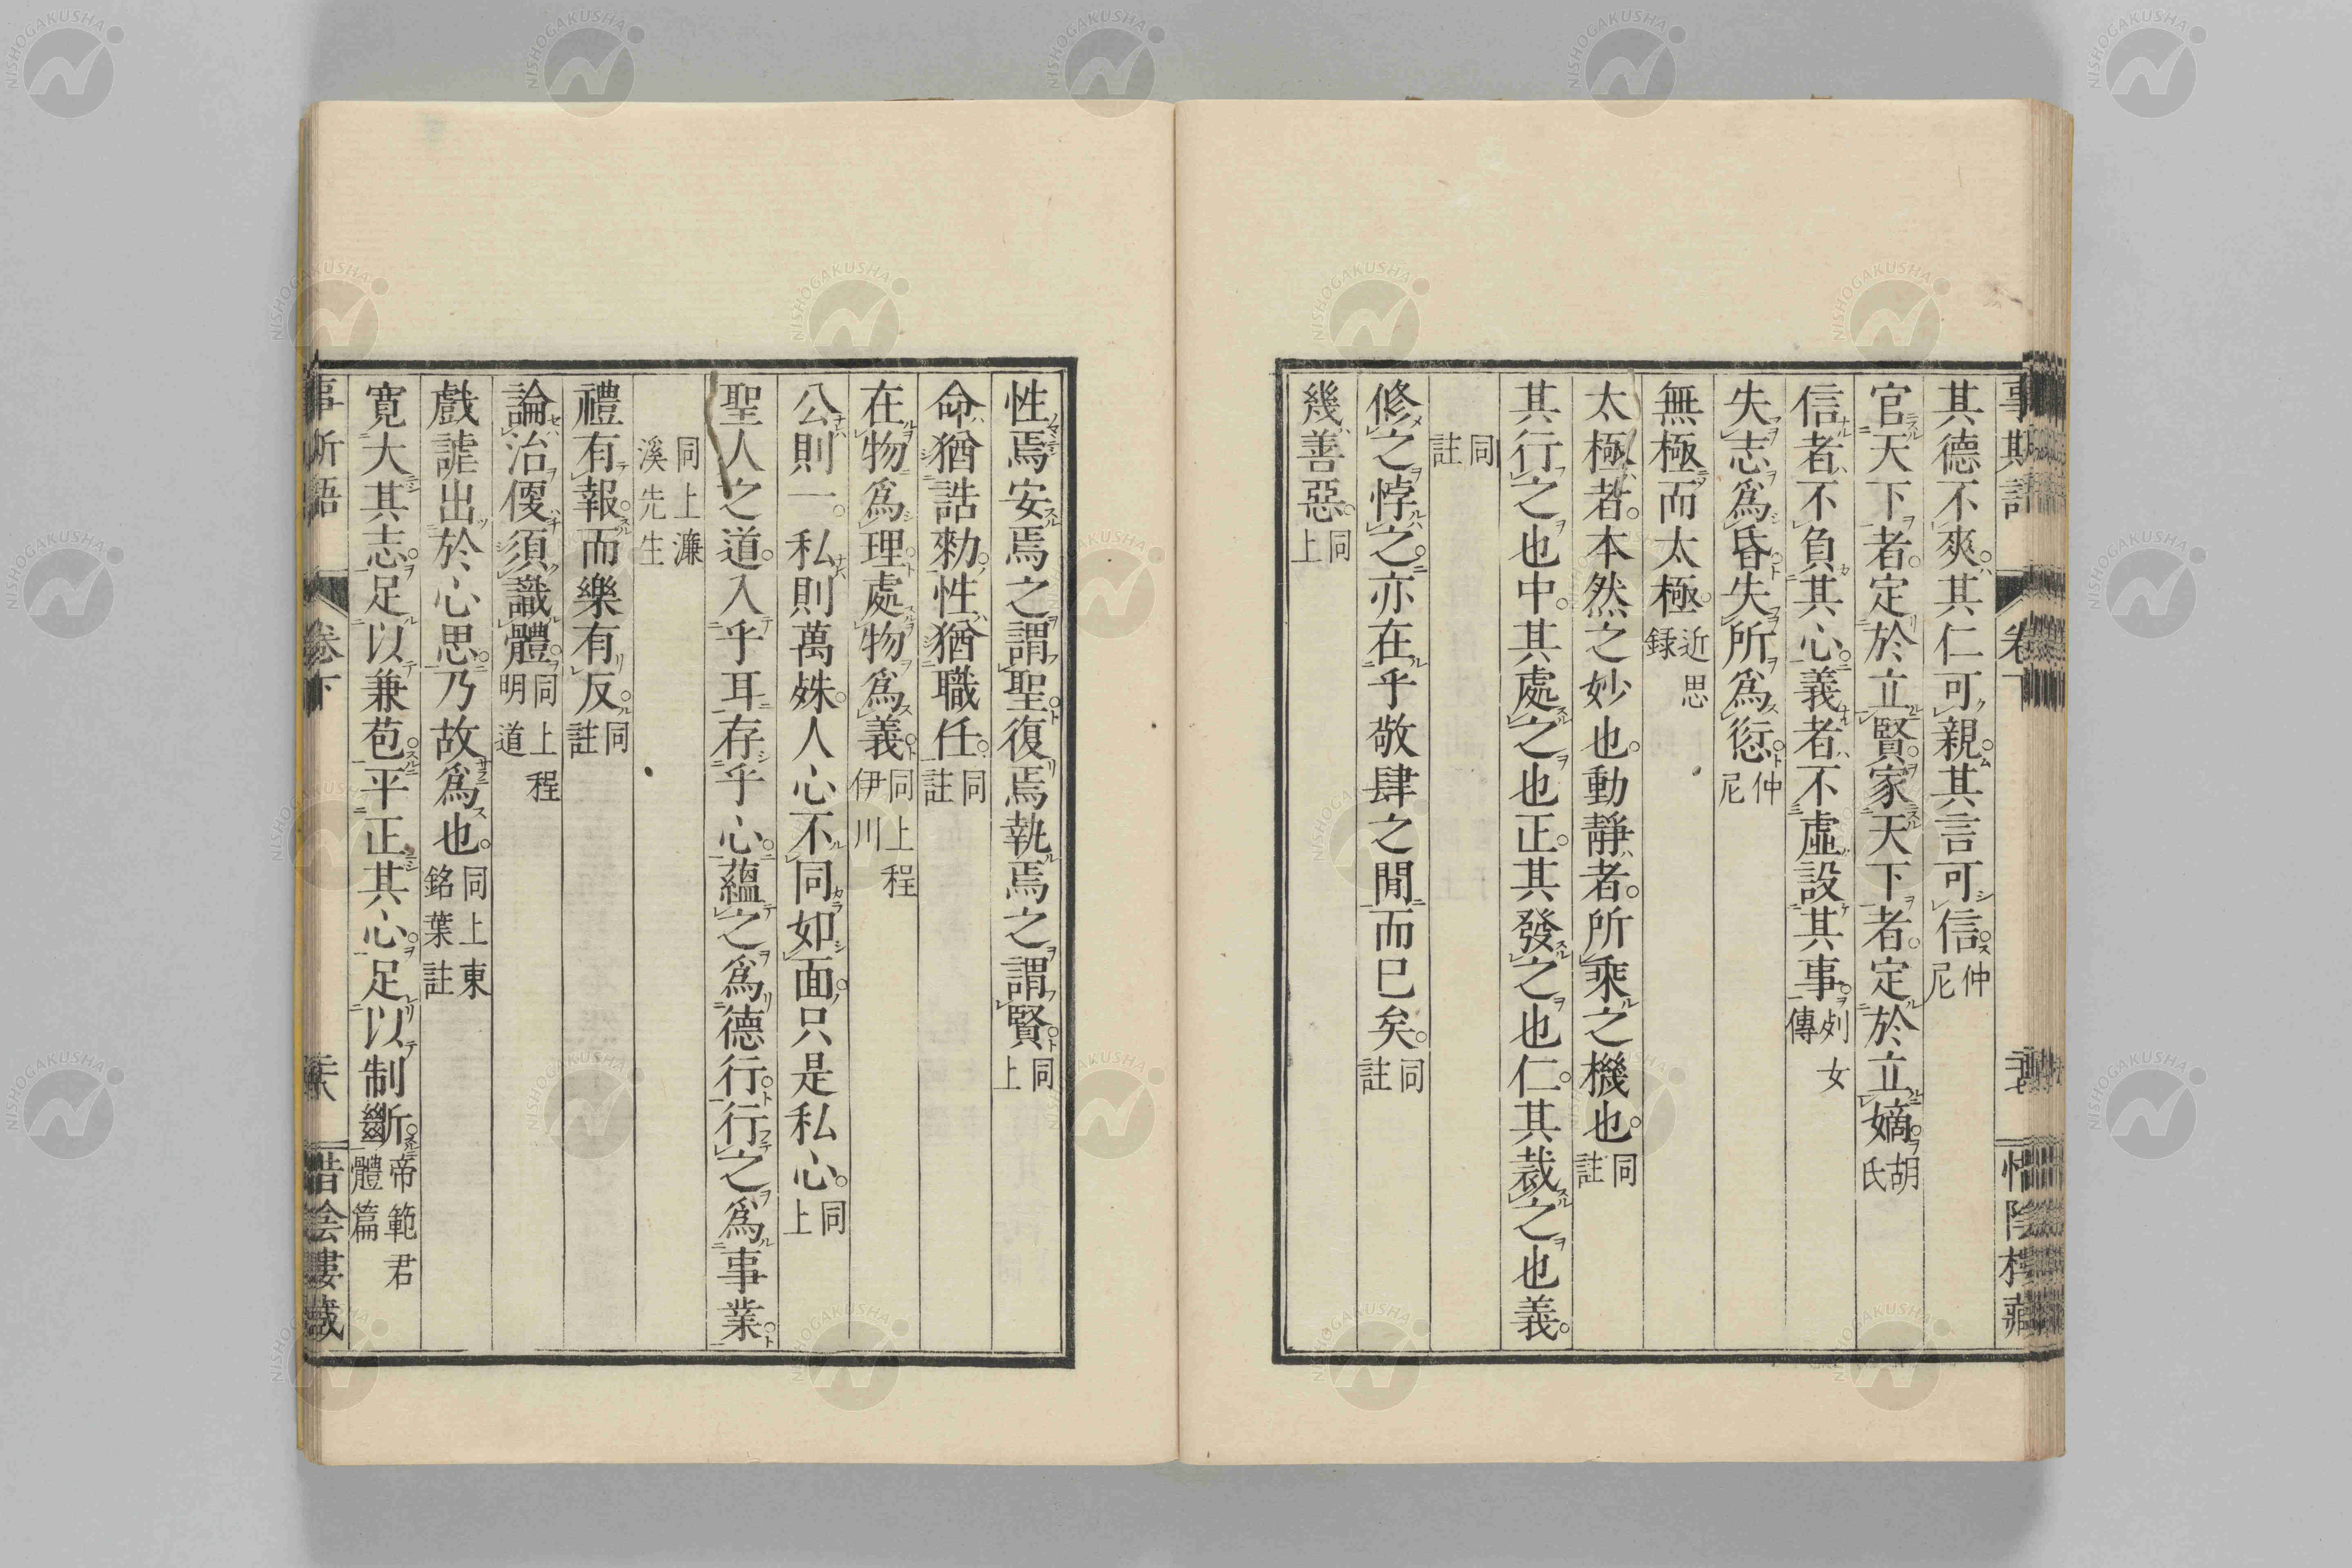 其德不爽其仁可親其言可信仲尼
官天下者定於立賢家天下者定於立嫡胡氏
信者不負其心義者不虛設其事列女傳
失志爲昏失所爲愆仲尼
無極而太極近思録
太極者本然之妙也動靜者所乘之機也同註
其行之也中其處之也正其發之也仁其裁之也義
同註
修之悖之亦在乎敬肆之閒而已矣同註
幾善惡同上
性焉安焉之謂聖復焉執焉之謂賢同上
命猶誥勅性猶職任同註
在物爲理處物爲義同上程伊川
公則一私則萬殊人心不同如面只是私心同上
聖人之道入乎耳存乎心蘊之爲德行行之爲事業
同上濂溪先生
禮有報而樂有反同註
論治便須識體同上程明道
戲謔出於心思乃故爲也同上東銘葉註
寬大其志足以兼苞平正其心足以制斷帝範君體篇
事斯語 卷下 惜陰樓藏
NISHOGAKUSHA